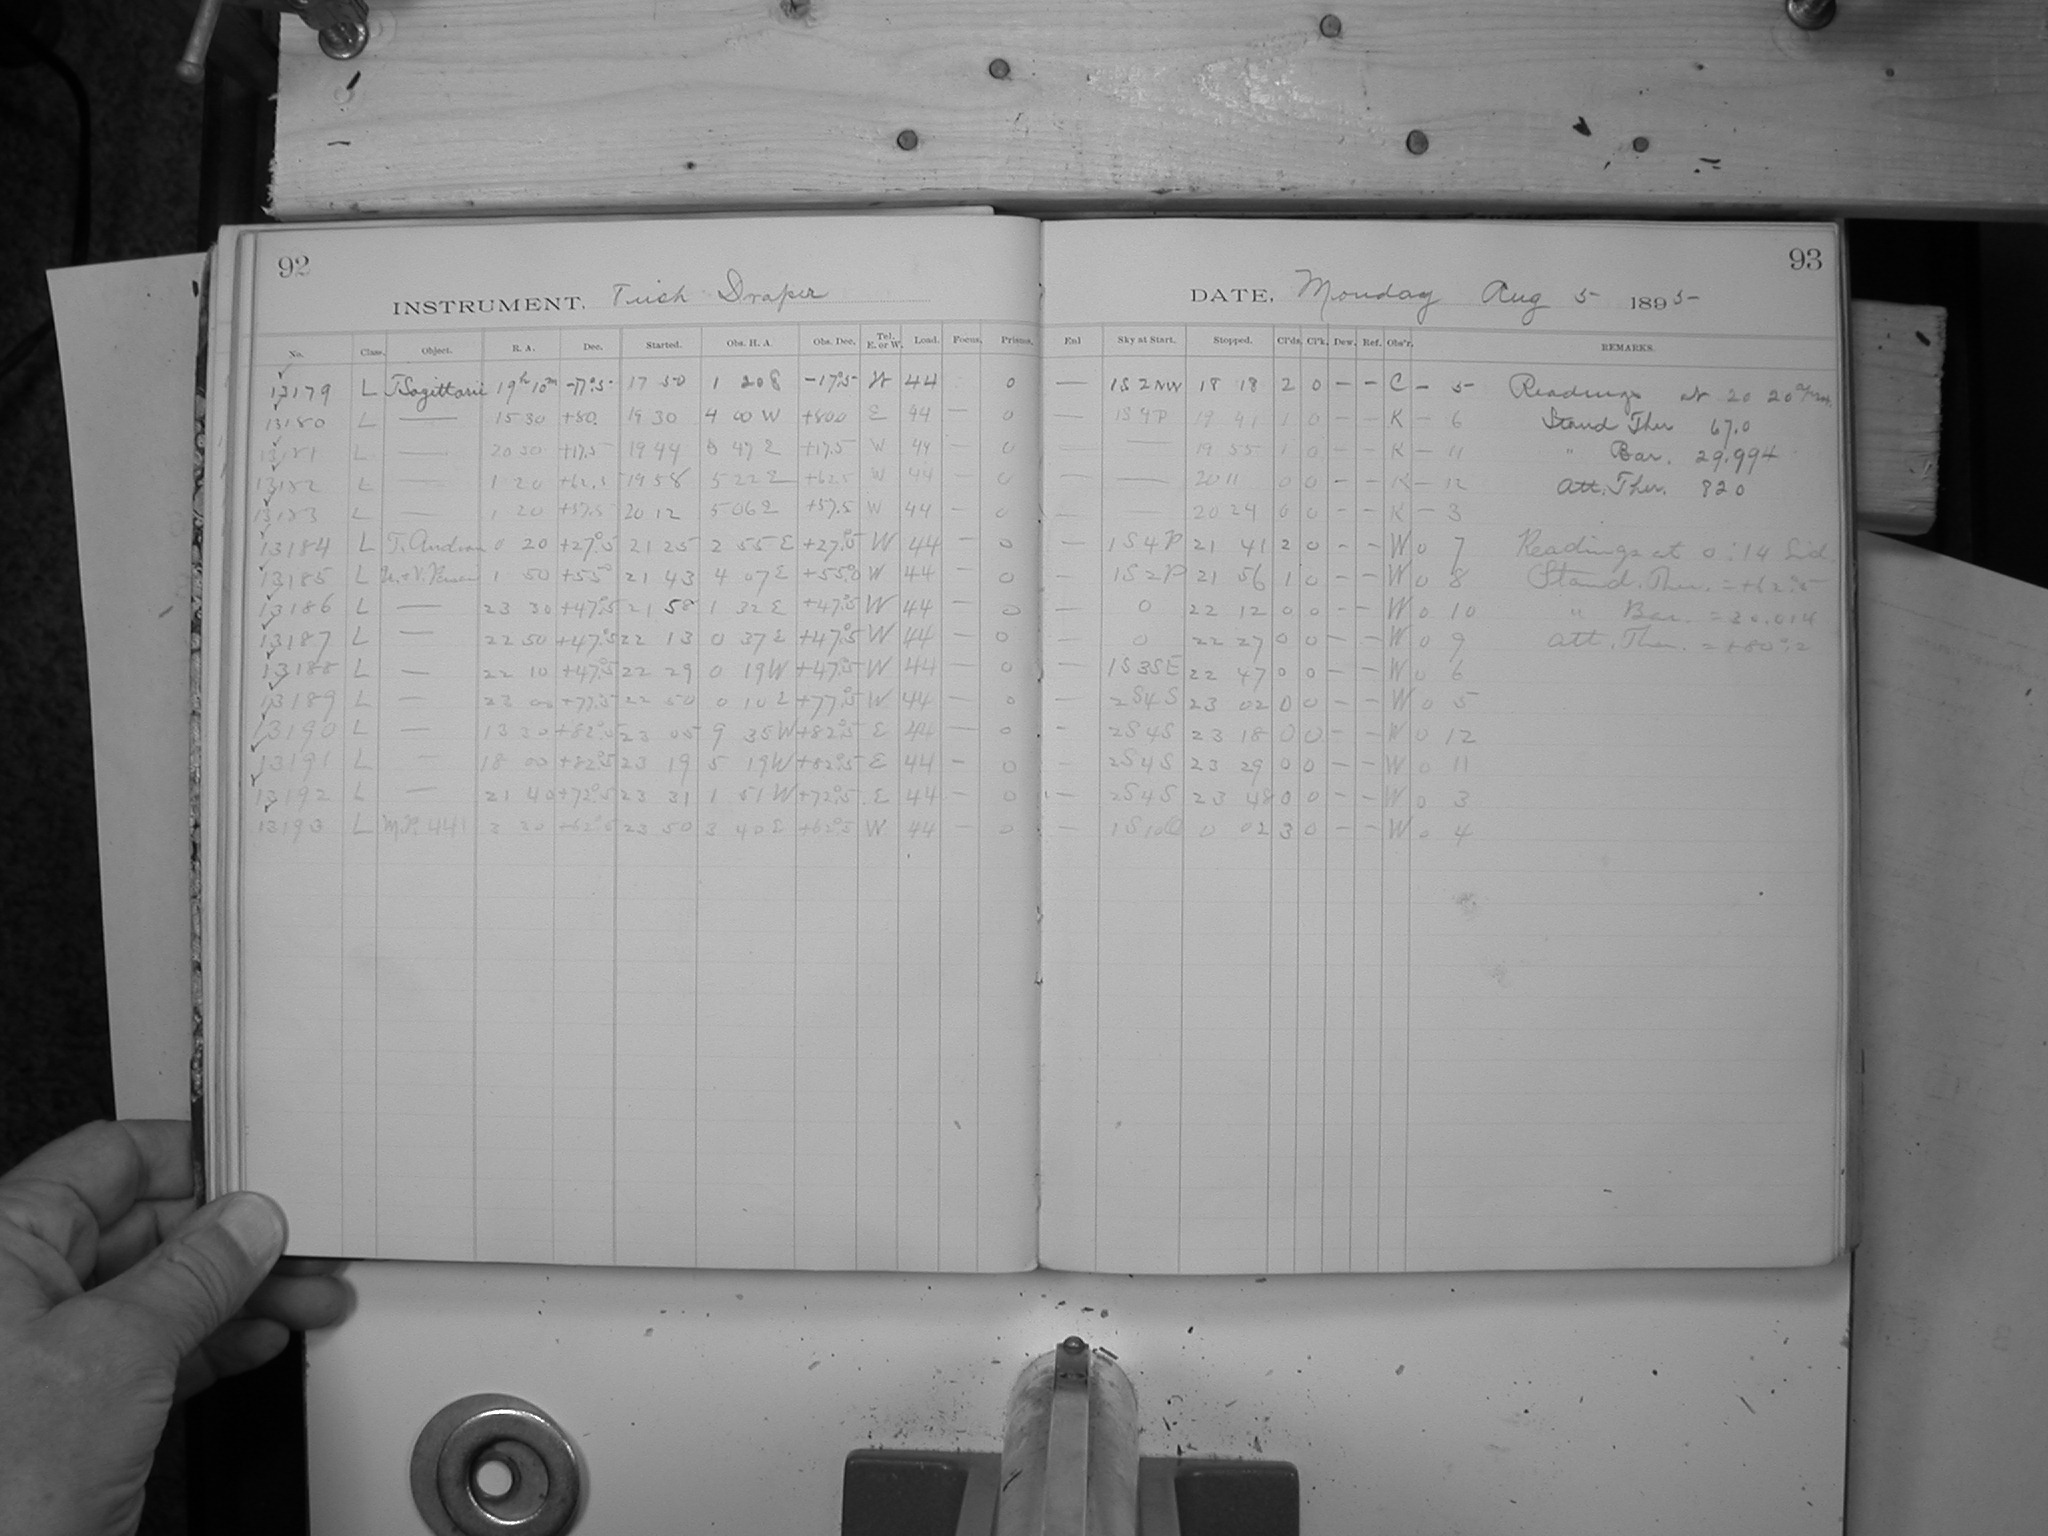 92
INSTRUMENT. Draper
No. Class. Object. R. A. Dec. Started. Obs. H. A. Obs. Dec. Tel. E. or W. Load. Focus. Prisms.
13179 L T Sagittarii 19h 10m -17°.5 17 50 1 208 -17°.5 W 44 0
13180 L — 15 30 +80. 19 30 4 00 W +80.0 E 44 — 0
13181 L — 20 50 +17.5 19 44 47 E +17.5 W 44 0
13182 L — 1 20 +62.5 19 58 5 22 E +62.5 W 44 — 0
13183 L — 1 20 +57.5 20 12 5 06 E +57.5 W 44 — 0
13184 L T. Androm 0 20 +27°.5 21 25 2 55 E +27°.5 W 44 — 0
13185 L U. & V. Persei 1 50 +55° 21 43 4 07 E +55°.0 W 44 — 0
13186 L — 23 30 +47°.5 21 58 1 32 E +47°.5 W 44 — 0
13187 L — 22 50 +47°.5 22 13 0 37 E +47°.5 W 44 — 0
13188 L — 22 10 +47°.5 22 29 0 19 W +47°.5 W 44 — 0
13189 L — 23 00 +77°.5 22 50 0 10 E +77°.5 W 44 — 0
13190 L — 13 30 +82°.5 23 05 9 35 W +82°.5 E 44 — 0
13191 L — 18 00 +82°.5 23 19 5 19 W +82°.5 E 44 — 0
13192 L — 21 40 +72°.5 23 31 1 51 W +72°.5 E 44 — 0
13193 L M.P. 441 3 30 +62°.5 23 50 3 40 E +62°.5 W 44 — 0
93
DATE, Monday Aug 5 1895
Enl Sky at Start. Stopped. Cl'ds. Cl'k. Dew. Ref. Obs'r. REMARKS.
— 1S 2 NW 18 18 2 0 — — C — 5 Readings at 20 20
1S 4 P 19 41 1 0 — — K — 6 Stand Ther 67.0
— — 19 55 1 0 — — K — 11 " Bar. 29.994
— — 20 11 0 0 — — K — 12 Att. Ther. 82 0
— — 20 24 0 0 — — K — 3
— 1S 4 P 21 41 2 0 — — W 0 7 Readings at 0:14 Sid.
— 1S 2 P 21 56 1 0 — — W 0 8 Stand. Ther. = +62°.5
— 0 22 12 0 0 — — W 0 10 " Bar. = 30.014
— 0 22 27 0 0 — — W 0 9 Att. Ther. = +80°.2
— 1S 3 SE 22 47 0 0 — — W 0 6
— 2S 4 S 23 02 0 0 — — W 0 5
— 2S 4 S 23 18 0 0 — — W 0 12
— 2S 4 S 23 29 0 0 — — W 0 11
— 2S 4 S 23 48 0 0 — — W 0 3
— 1S 10 0 02 3 0 — — W 0 4